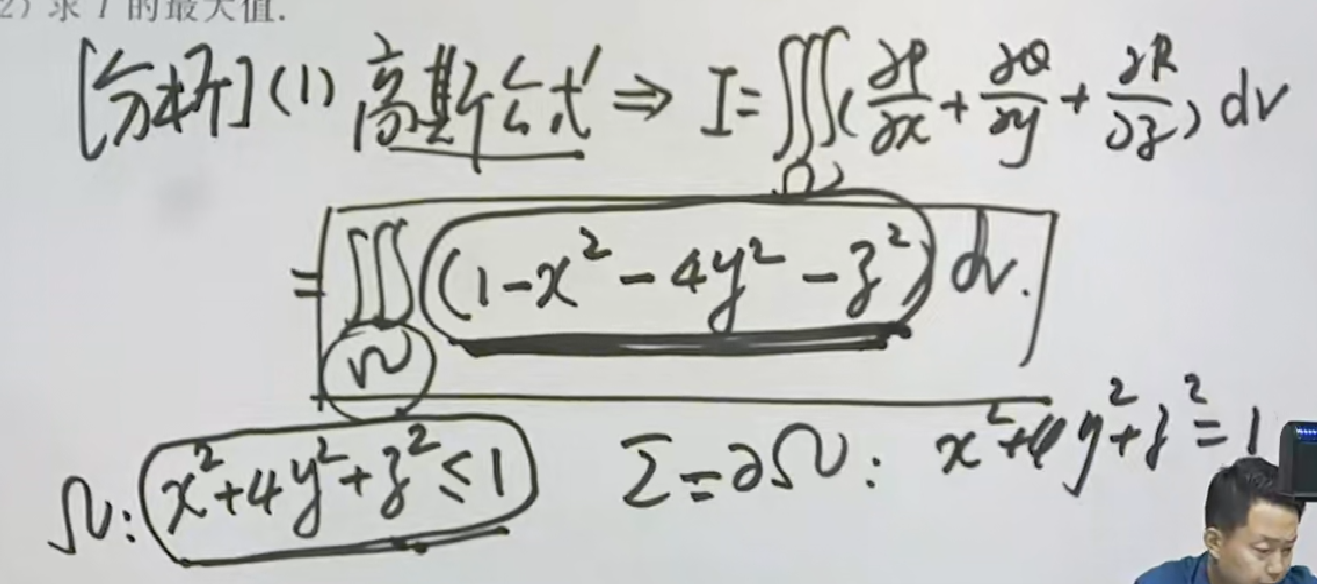 2) 求 I 的最大值.
[分析](1) 高斯公式 ⇒ I=∭_Ω(∂P/∂x+∂Q/∂y+∂R/∂z) dv
=∭_Ω(1-x²-4y²-z²)dv.
Ω: x²+4y²+z²≤1 Σ=∂Ω: x²+4y²+z²=1